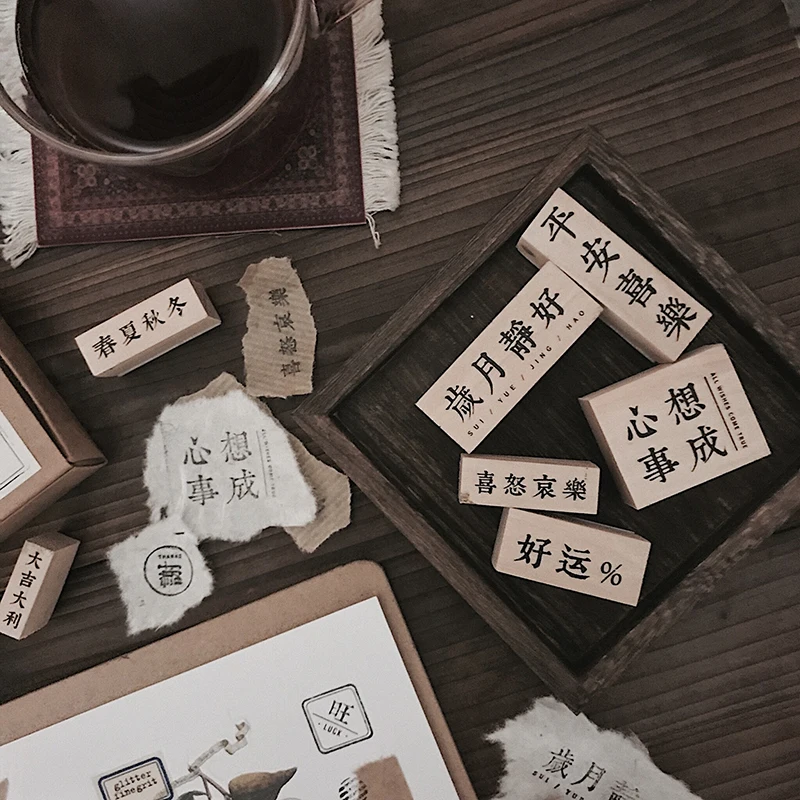 平安喜樂
歲月靜好
SUI / YUE / JING / HAO
心想
事成
ALL WISHES COME TRUE
喜怒哀樂
好运%
春夏秋冬
喜怒哀樂
心想
事成
ALL WISHES COME TRUE
THANKS
謝
大吉大利
旺
·LUCK·
glitter
finegrit
歲月靜
SUI / YUE